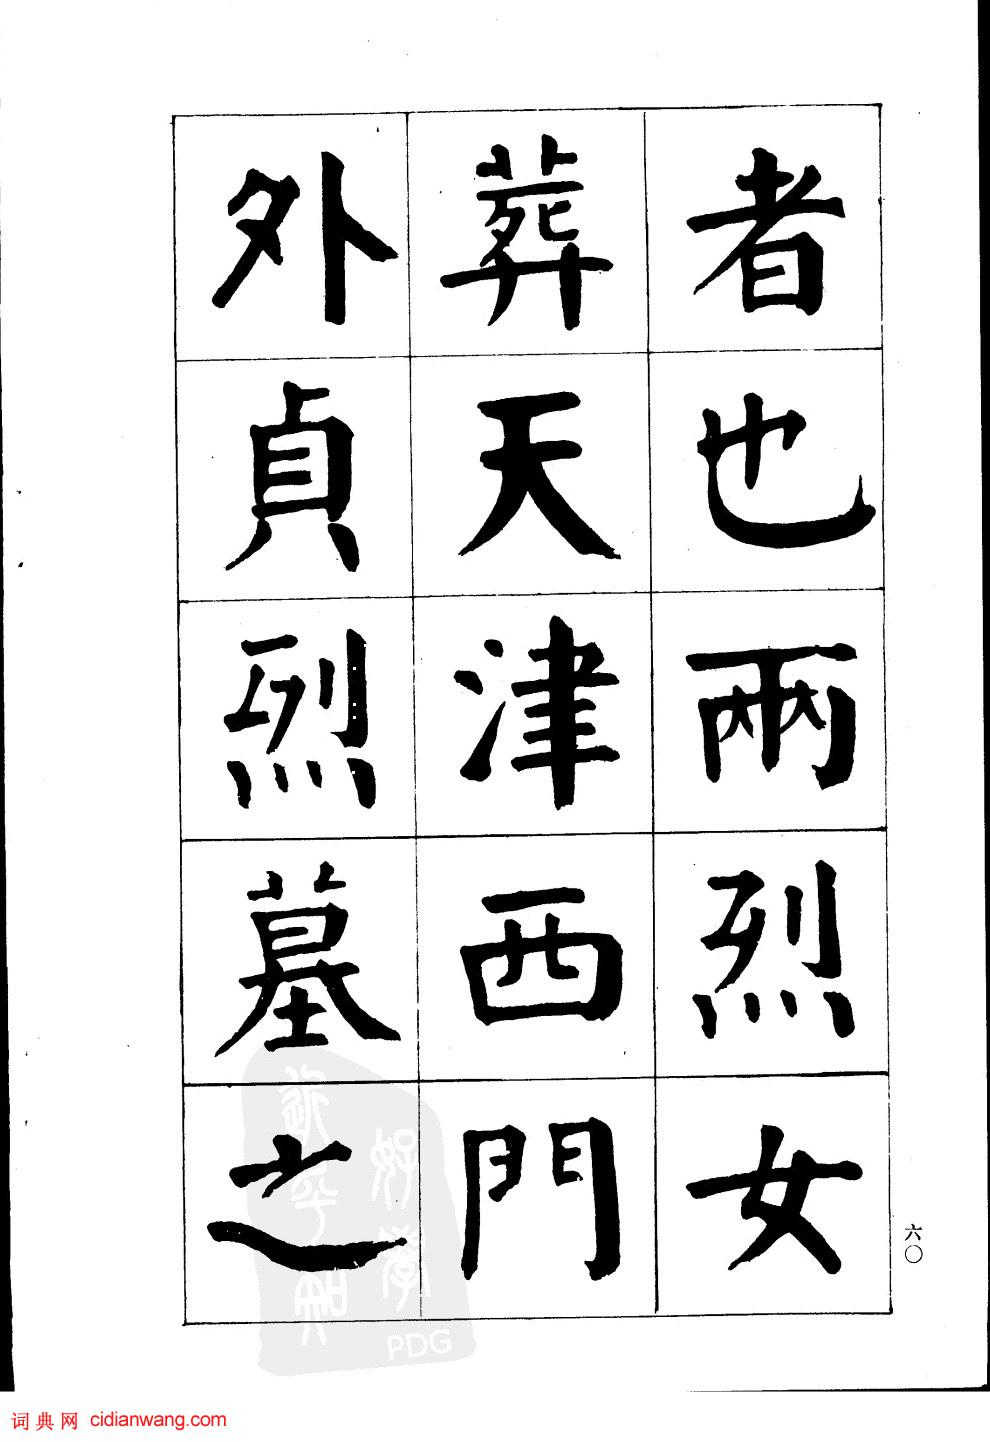 者也兩烈女
葬天津西門
外貞烈墓之
六〇
PDG
词典网 cidianwang.com